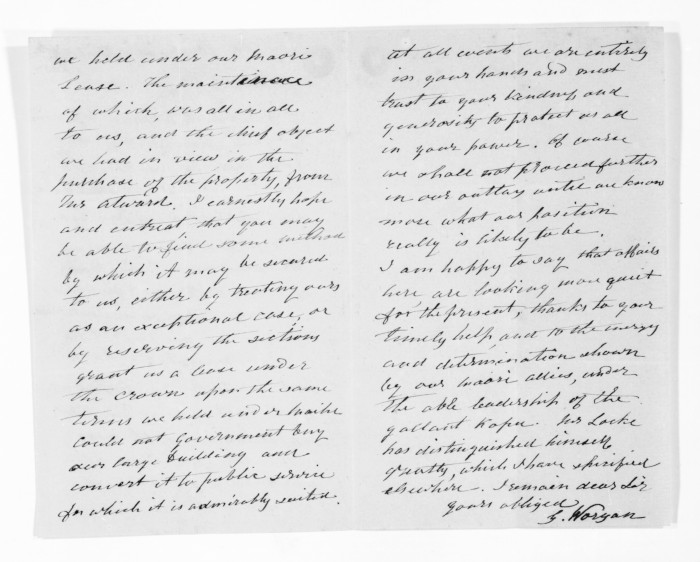 we held under our Maori
Lease. The maintinance
of which, was all in all
to us, and the chief object
we had in view in the
purchase of the property, from
Mr Atward. I earnestly hope
and entreat, that you may
be able to find some method
by which it may be secured
to us, either by treating ours
as an exceptional case, or
by reserving the sections
grant us a lease under
the crown upon the same
terms we held under
could not Government buy
our large building and
convert it to public service
for which it is admirably suited.
at all events we are entirely
in your hands and must
trust to your kindness and
generosity to protect us all
in your power. Of course
we shall not proceed further
in our outlay until we know
more what our position
really is likely to be.
I am happy to say that affairs
here are looking more quiet
for the present, thanks to your
timely help and to the energy
and determination shown
by our maori allies, under
the able leadership of the
gallant Ropu. Mr Locke
has distinguished himself
greatly, which I have specified
elsewhere. I remain dear Sir
yours obliged
G. Worgan